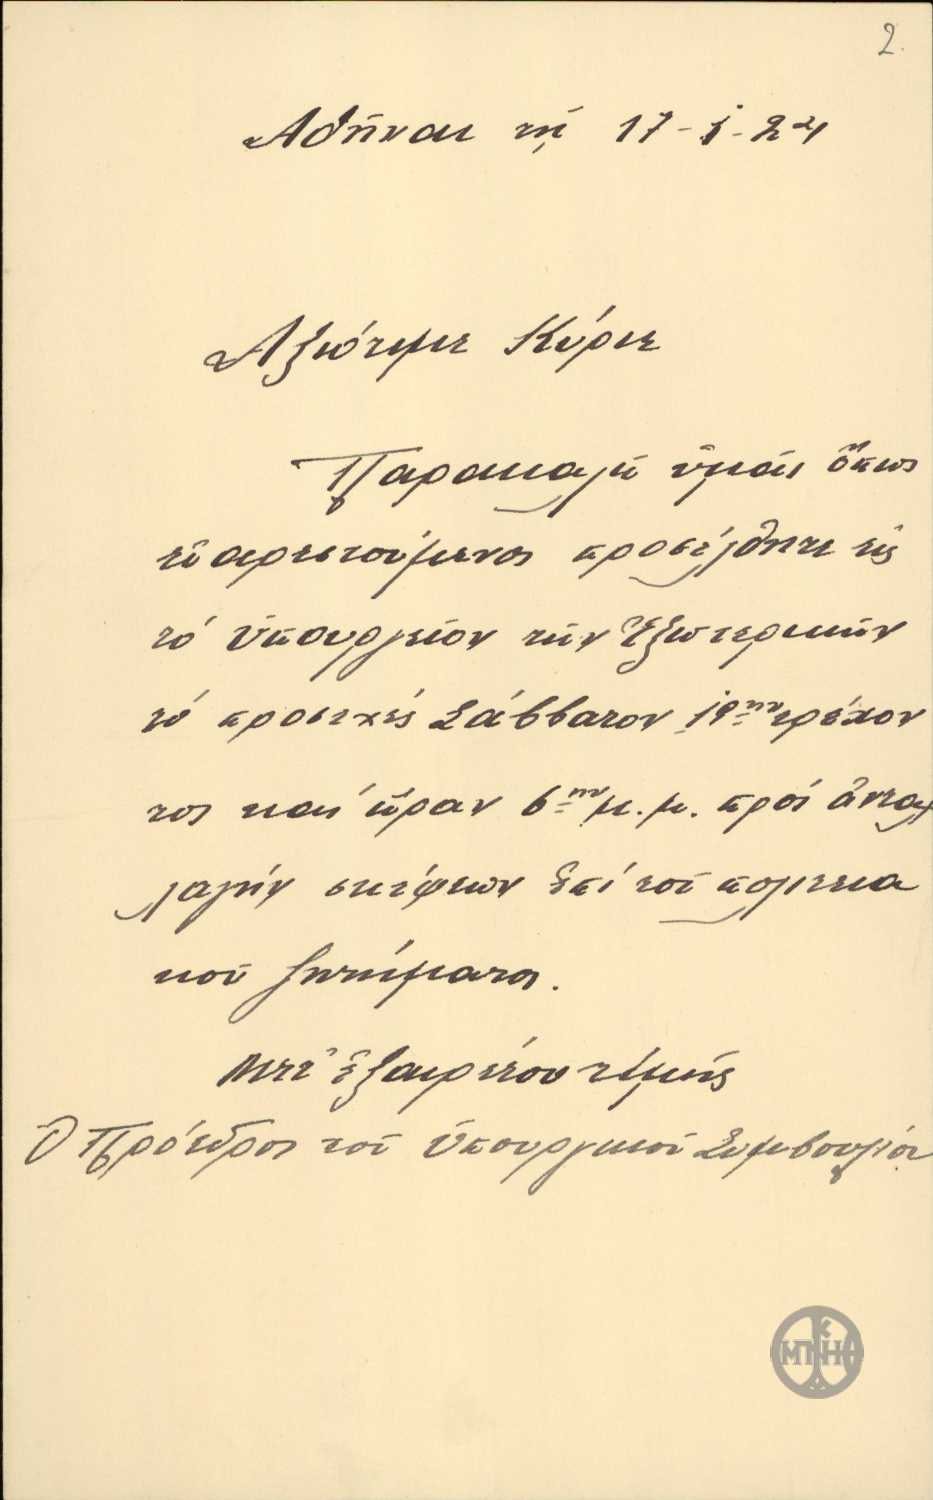 2.
Ἀθῆναι τῇ 17-1-24
Ἀξιότιμε Κύριε
Παρακαλῶ ὑμᾶς ὅπως
εὐαρεστούμενος προσέλθητε εἰς
τό Ὑπουργεῖον τῶν Ἐξωτερικῶν
τό προσεχές Σάββατον 19ην τρέχον
τος καί ὥραν 6ην μ.μ. πρός ἀνταλ
λαγήν σκέψεων ἐπί τοῦ πολιτεια
κοῦ ζητήματος.
Μετ' ἐξαιρέτου τιμῆς
Ὁ Πρόεδρος τοῦ Ὑπουργικοῦ Συμβουλίου
ΜΠΚΗ